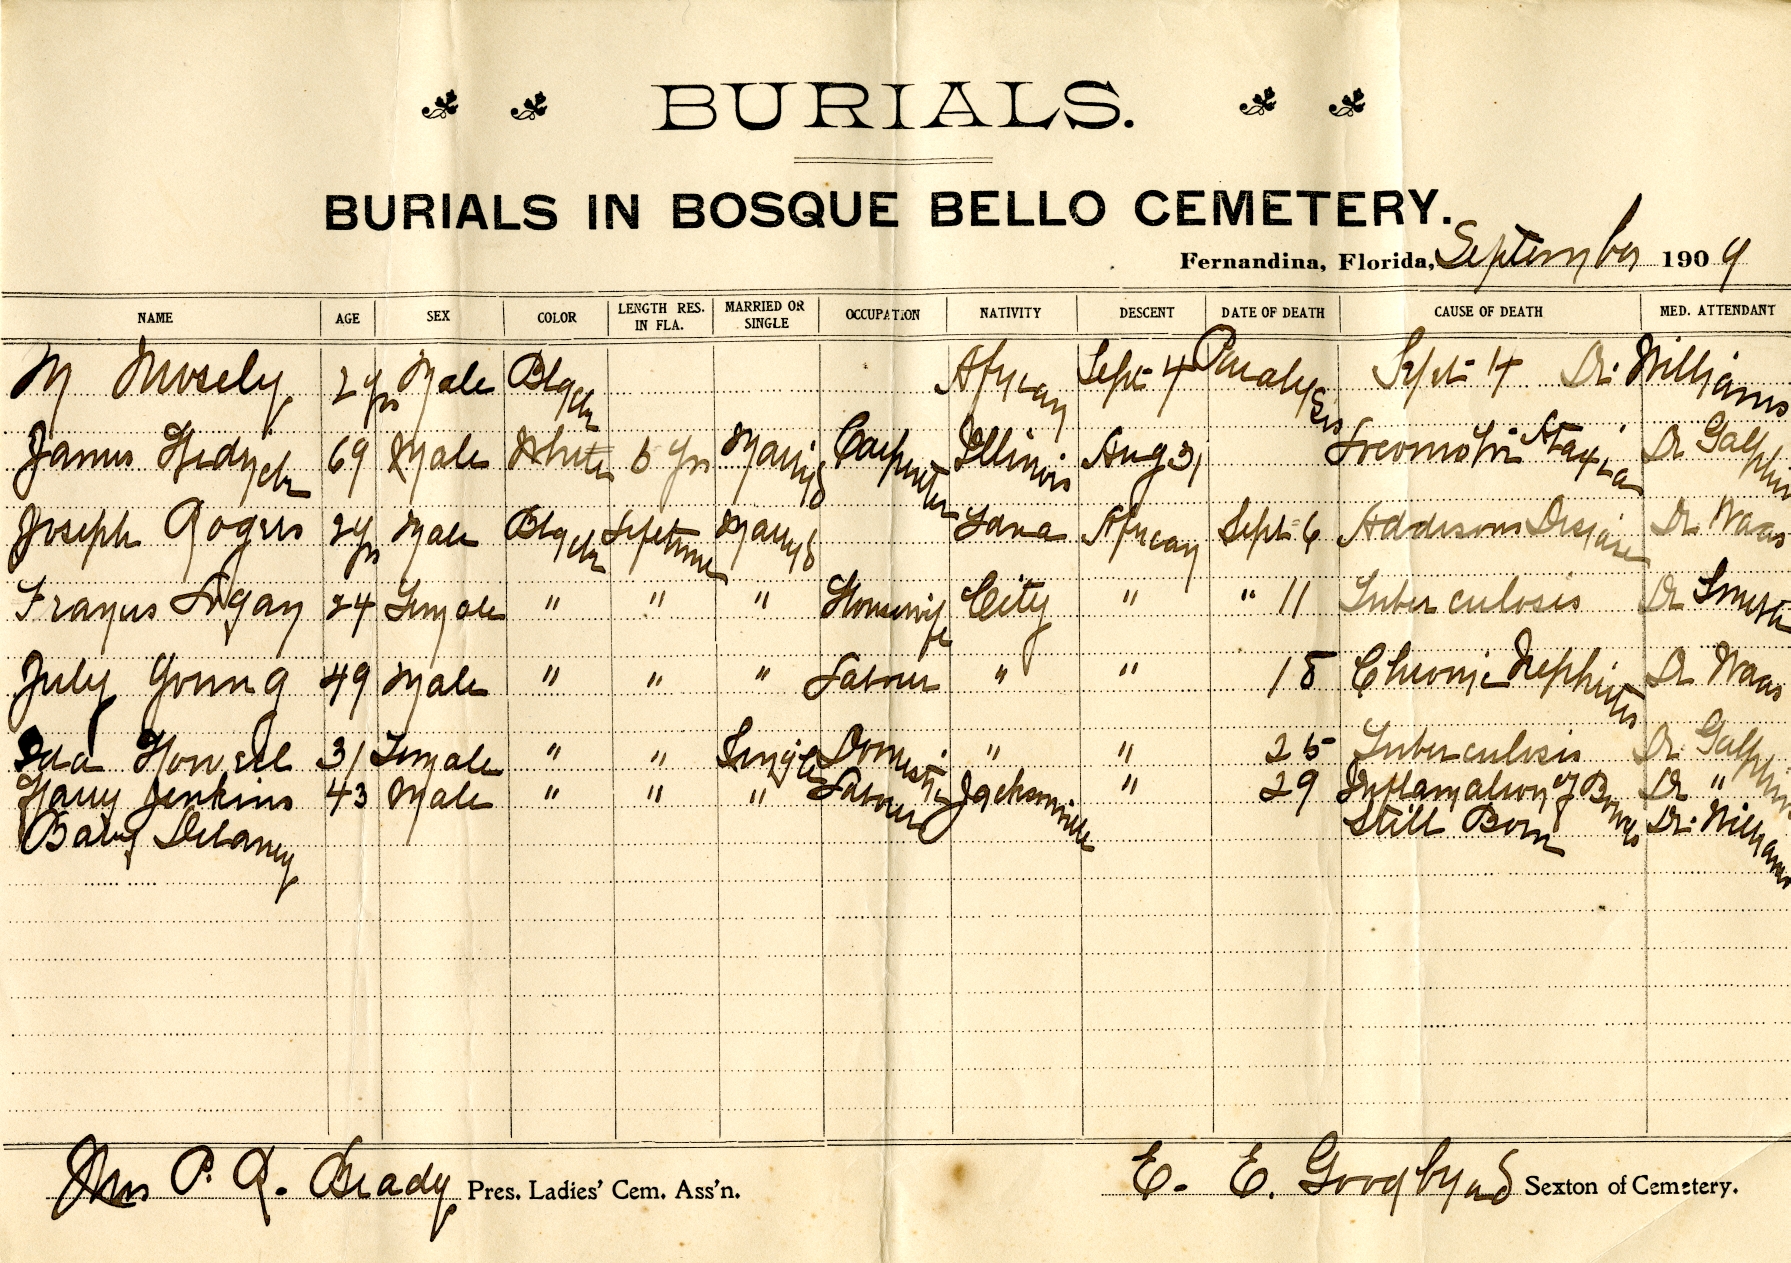 BURIALS.
BURIALS IN BOSQUE BELLO CEMETERY.
Fernandina, Florida, September 1909
NAME AGE SEX COLOR LENGTH RES. IN FLA. MARRIED OR SINGLE OCCUPATION NATIVITY DESCENT DATE OF DEATH CAUSE OF DEATH MED. ATTENDANT
M Mosely 2 yrs Male Black African Sept 4 Paralysis Sept 4 Dr. Williams
James 69 Male White yrs Married Carpenter Illinois Aug 31 Locomotive Ataxia Dr Galphin
Joseph Rogers yrs Male Black Lifetime Married African Sept 6 Addisons Disease Dr Waas
24 Female " " " Housewife City " " 11 Tuberculosis Dr Smith
July Young 49 Male " " " Labour " " 18 Chronic Nephritis Dr Waas
Ida Howell 31 Female " " Single Domestic " " 25 Tuberculosis Dr. Galphin
Harry Jenkins 43 Male " " " Labour Jacksonville " 29 Inflamation of Bowls Dr "
Baby Delaney Still Born Dr. Williams
Mrs P. R. Brady Pres. Ladies' Cem. Ass'n. E. E. Goodbyad Sexton of Cemetery.